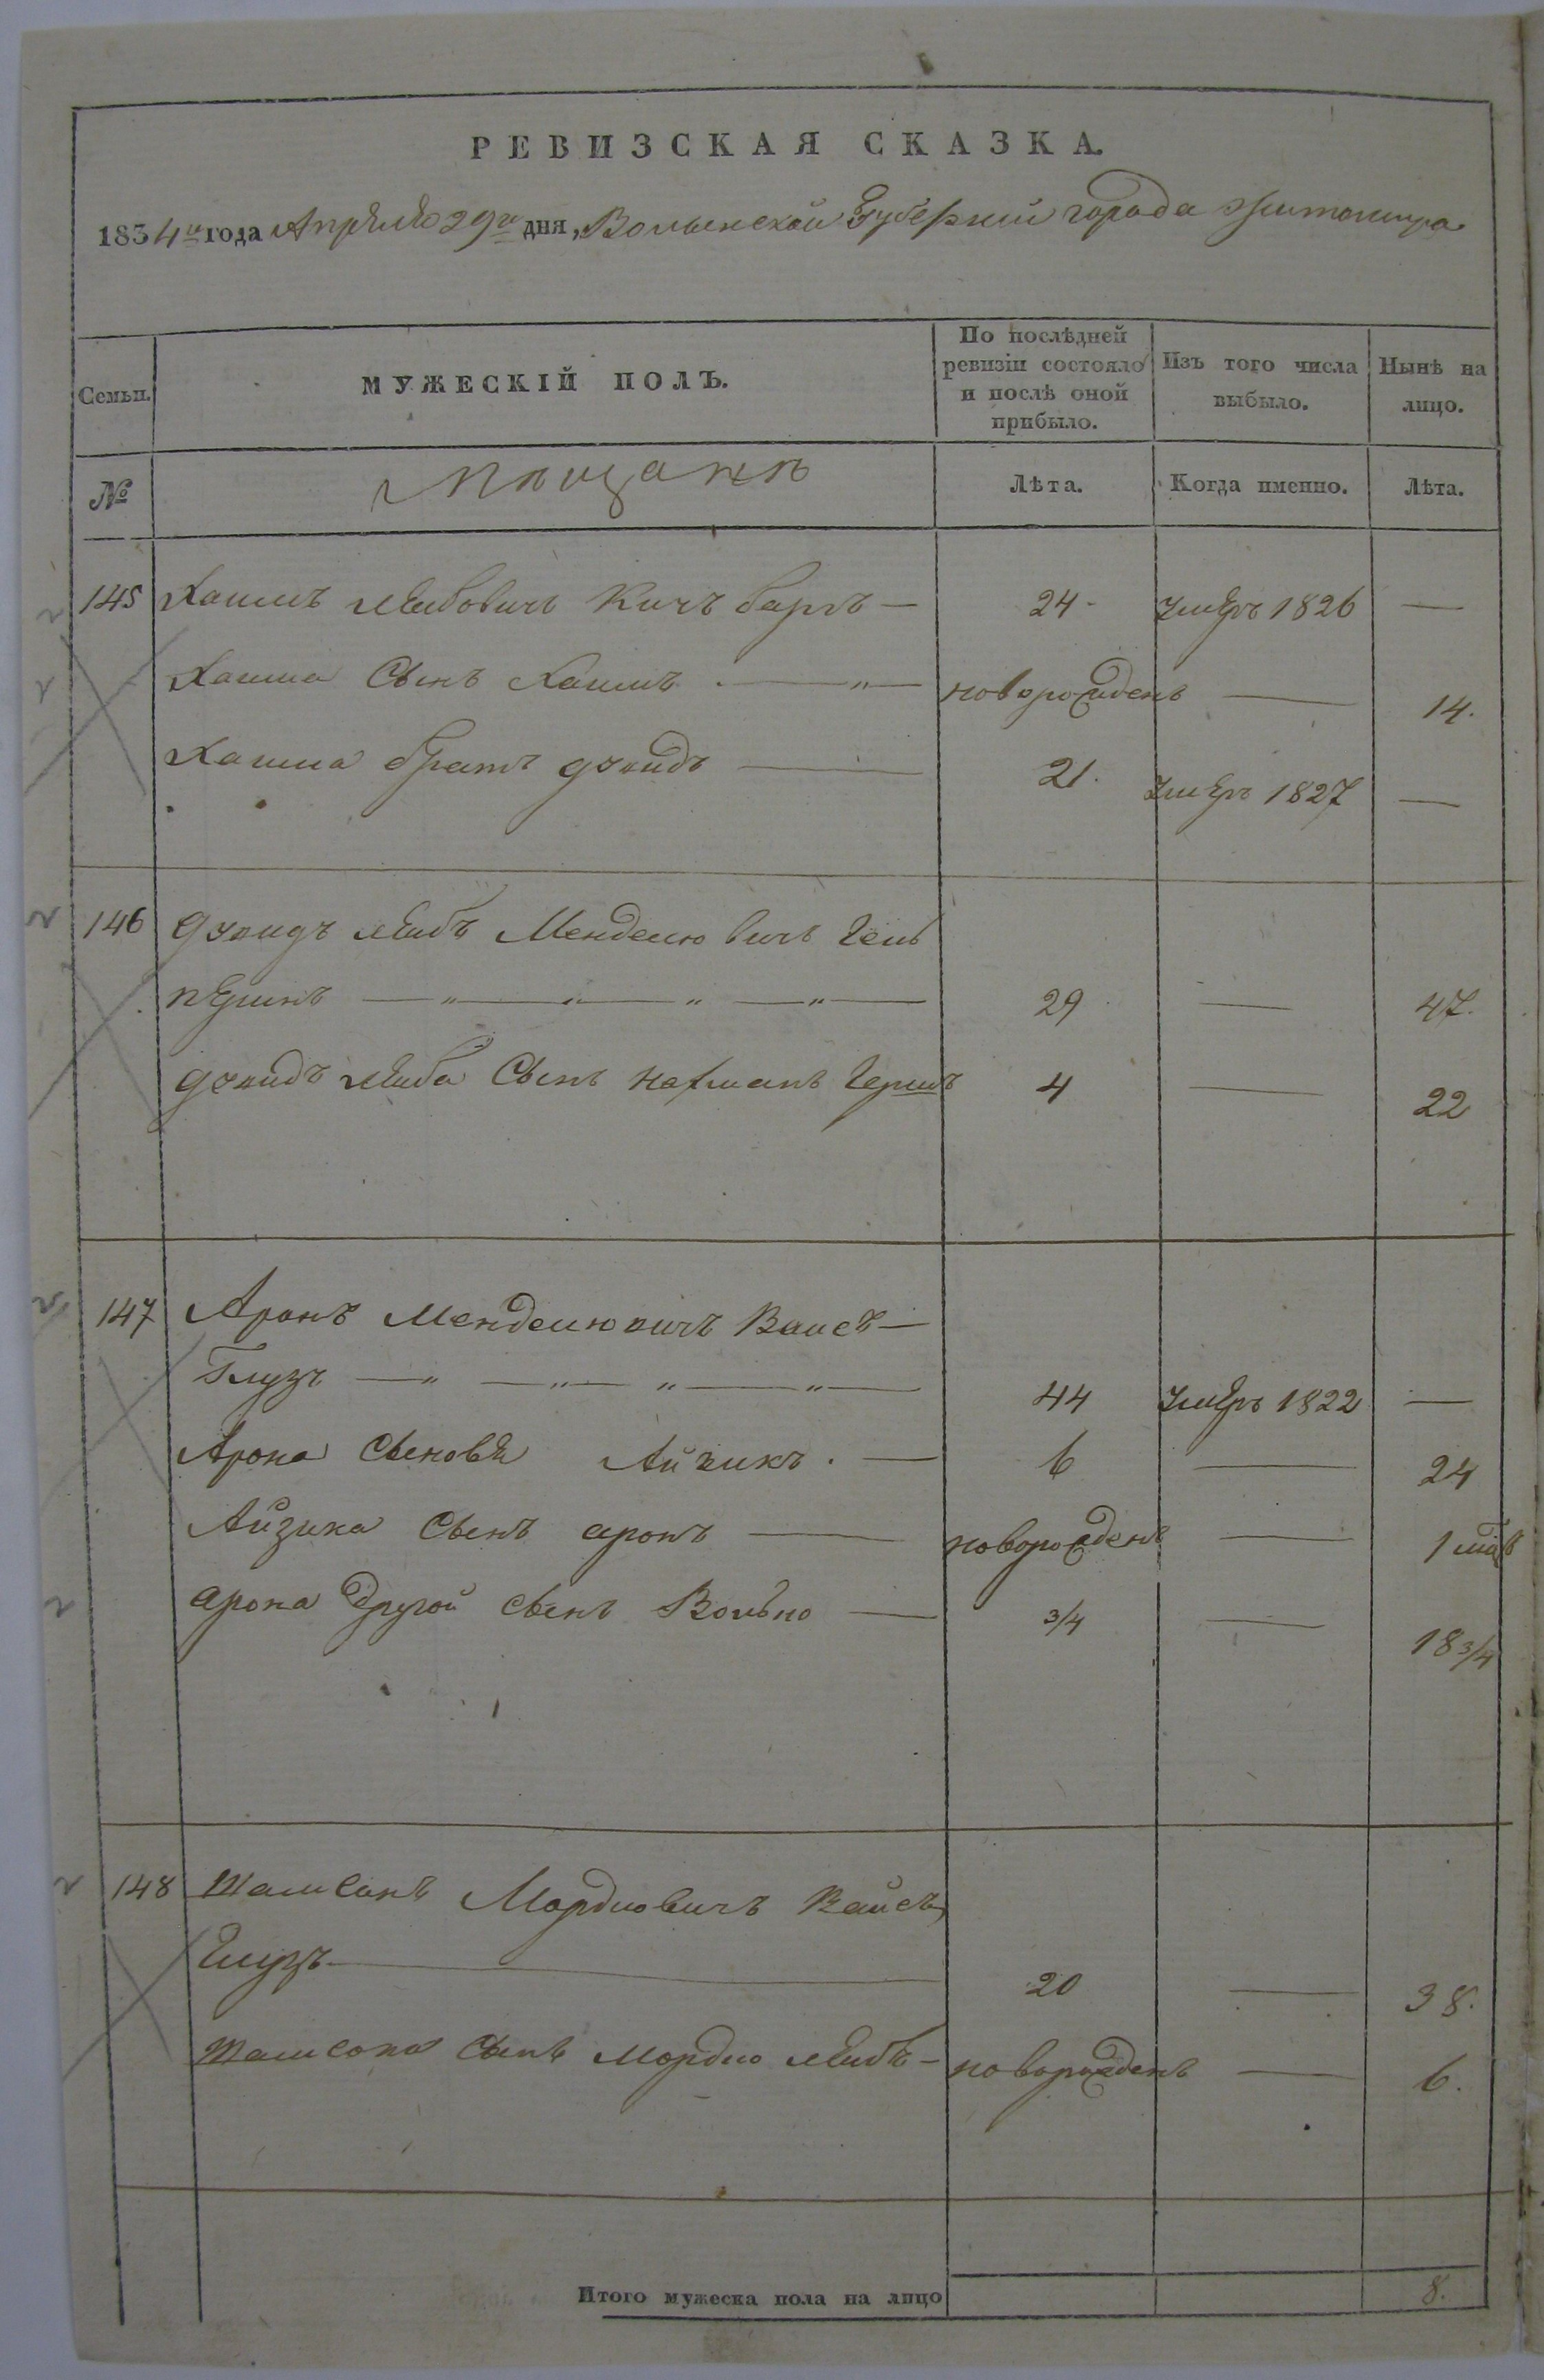 РЕВИЗСКАЯ СКАЗКА.
1834го года Апреля 29го дня, Волынской Губернии города Житомира
Семьи. МУЖЕСКІЙ ПОЛЪ. По послѣдней ревизіи состояло и послѣ оной прибыло. Изъ того числа выбыло. Нынѣ на лицо.
№ Мещане Лѣта. Когда именно. Лѣта.
145 Хаимъ Лейбовичъ 24 умеръ 1826 —
Хаима Сынъ — новорожденъ — 14.
Хаима братъ Дувидъ — 21. умеръ 1827 —
146 Дувидъ Лейбъ Менделювичъ
— 29 — 47.
Дувидъ Лейба Сынъ Нахманъ Гершъ 4 — 22
147 Аронъ Менделювичъ Вайсъ —
Глузъ — 44 умеръ 1822 —
Арона Сыновья Айзикъ. — 6 — 24
Айзика Сынъ аронъ — новорожденъ — 1
арона другой сынъ Волько — 3/4 — 18 3/4
148 Шамсонъ Мордковичъ Вайсъ
Глузъ — 20 — 38.
Шамсона Сынъ Мордко Лейбъ — новорожденъ — 6.
Итого мужеска пола на лицо 8.